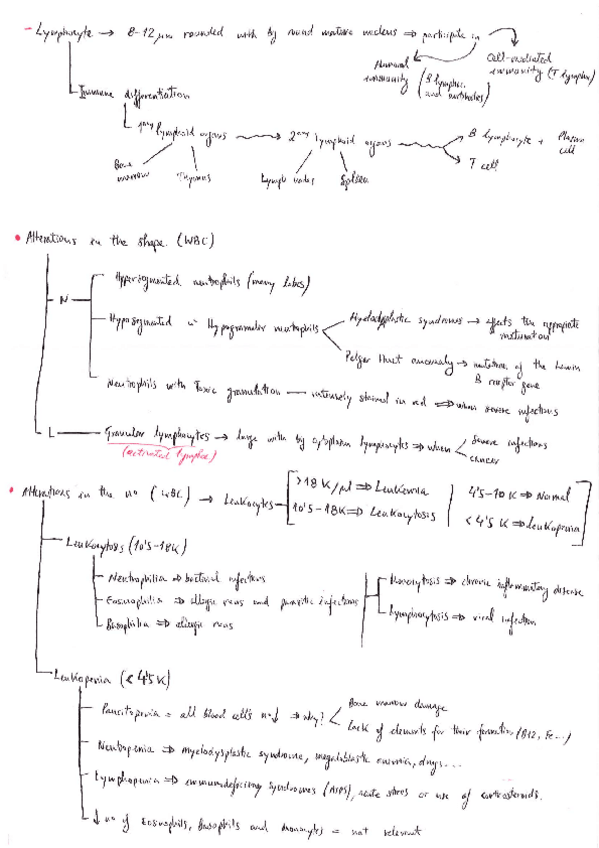 - Lymphocyte → 8-12 µm rounded with big round mature nucleus ⇒ participate in
Humoral immunity (B lymphoc. and antibodies)
Cell-mediated immunity (T lympho)
Immune differentiation
1ary lymphoid organs
2ary lymphoid organs
B lymphocyte + Plasma cell
T cell
Bone marrow
Thymus
Lymph nodes
Spleen
• Alterations in the shape (WBC)
N
Hypersegmented neutrophils (many lobes)
Hyposegmented Hypogranular neutrophils
Myelodysplastic syndromes → affects the appropiate maturation
Pelger Huet anomaly → mutation of the Lamin B receptor gene
Neutrophils with Toxic granulation — intensely stained in red ⇒ when severe infections
L
Granular lymphocytes → large with big cytoplasm lymphocytes ⇒ when
severe infections
cancer
(activated lympho)
• Alterations in the nº (WBC) → Leukocytes
>18 K/µl ⇒ Leukemia
10'5-18K ⇒ Leukocytosis
4'5-10 K ⇒ Normal
<4'5 K ⇒ leukopenia
Leukocytosis (10'5-18K)
Neutrophilia ⇒ bacterial infections
Eosinophilia ⇒ allergic and parasitic infections
Basophilia ⇒ allergic
Monocytosis ⇒ chronic inflammatory disease
Lymphocytosis ⇒ viral infection
Leukopenia (<4'5 K)
Pancitopenia = all blood cells nº ↓ ⇒ why?
Bone marrow damage
Lack of elements for their formation (B12, Fe...)
Neutropenia ⇒ myelodysplastic syndrome, megaloblastic anemia, drugs...
Lymphopenia ⇒ immunodeficiency syndromes (AIDS), acute stress or use of corticosteroids.
↓ nº of Eosinophils, Basophils and monocytes = not relevant